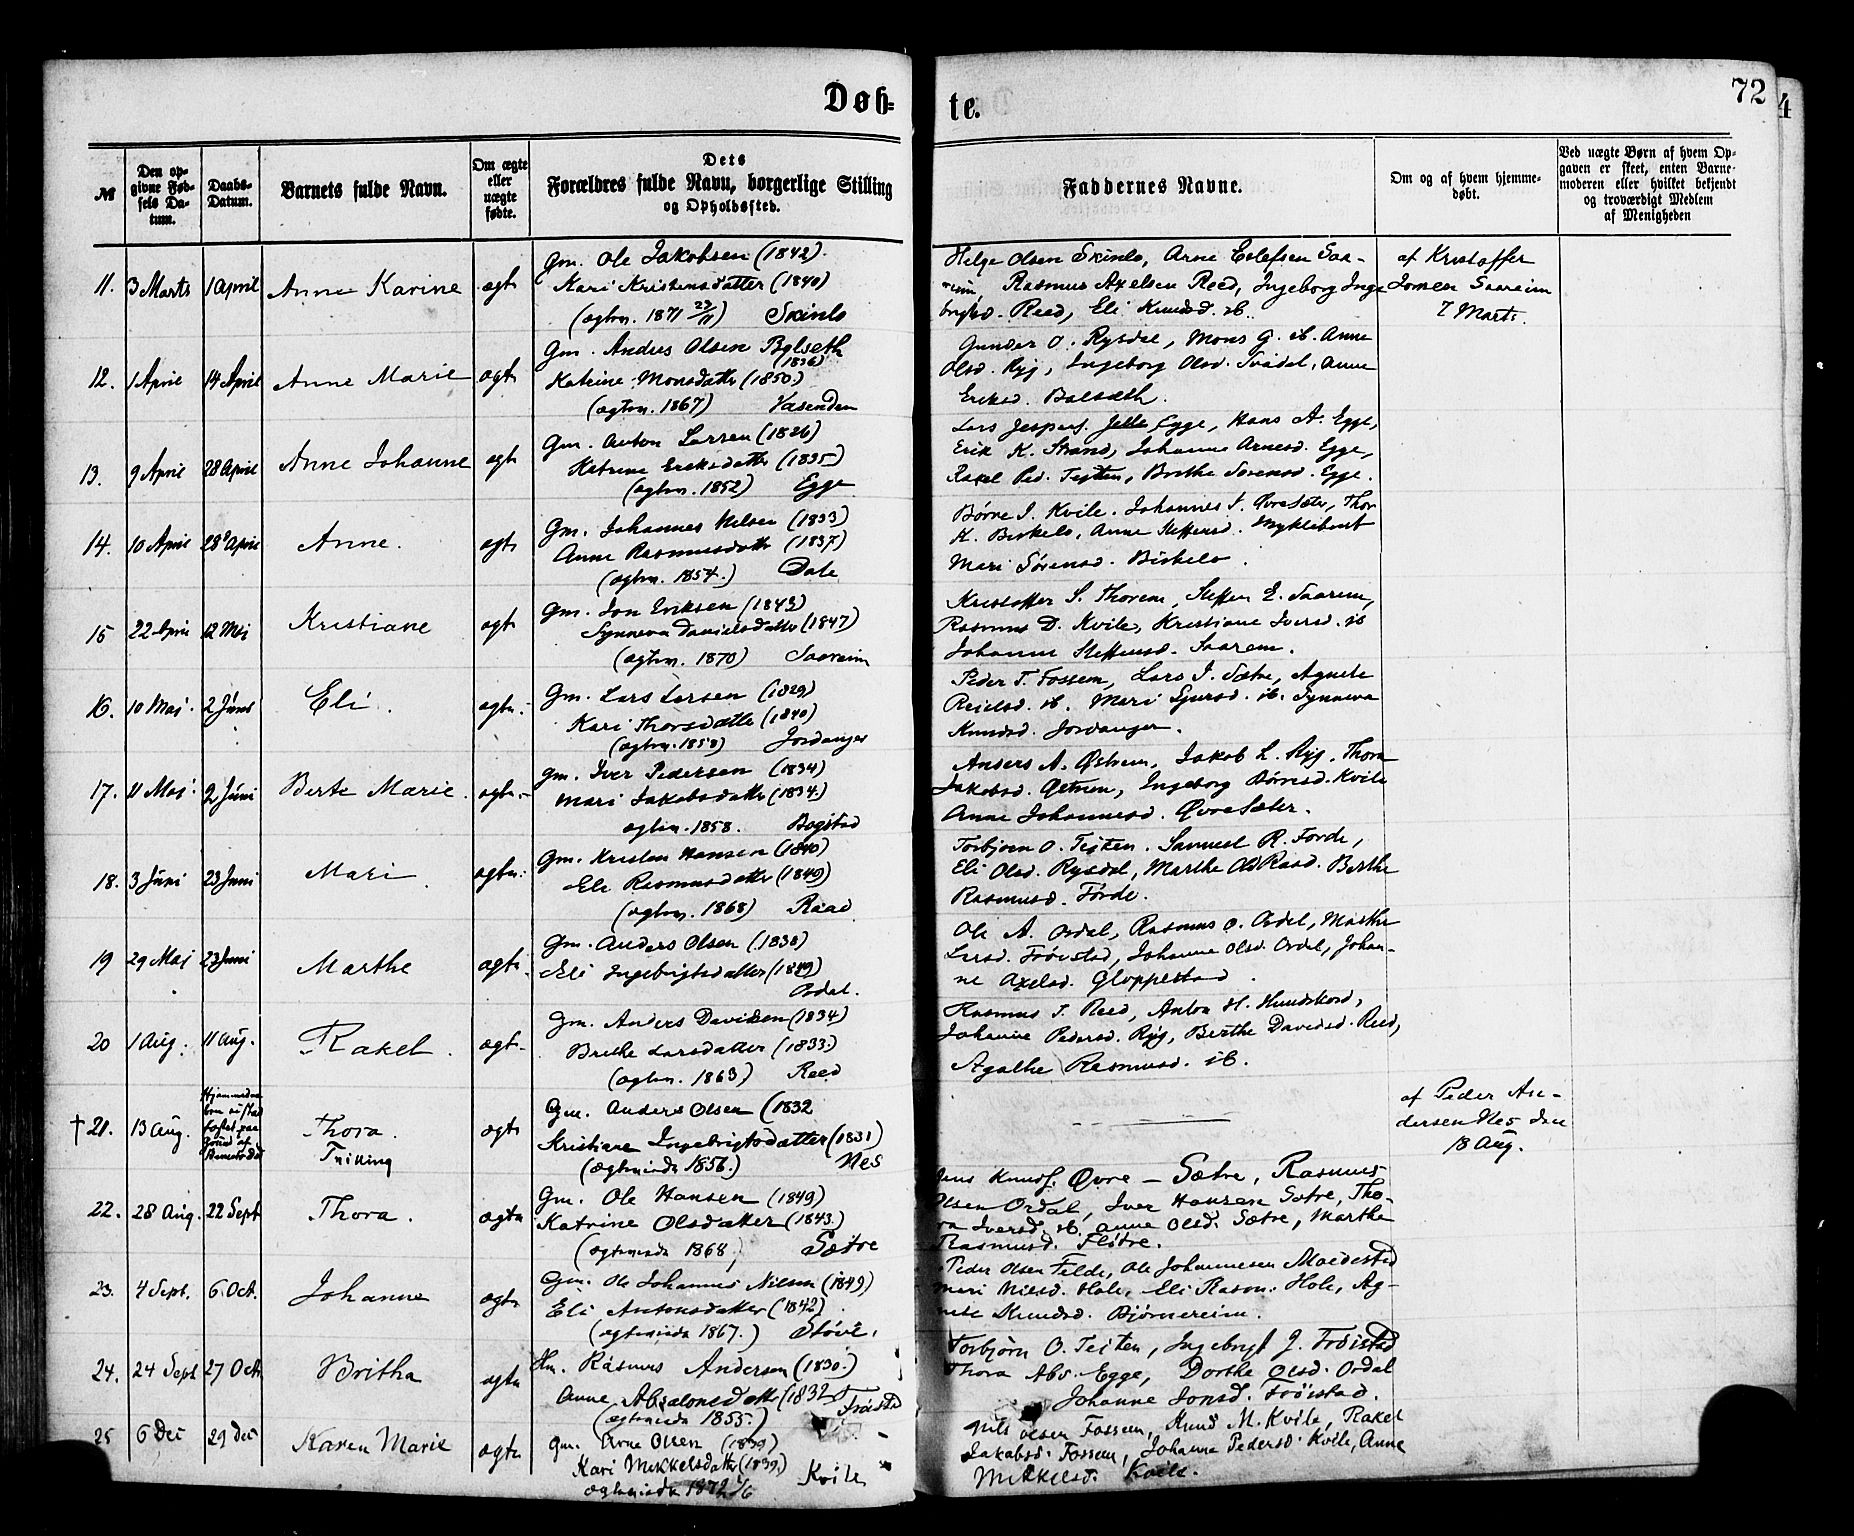 Døb=
te.
72
4
№
Den op=
givne Fød=
sels Da=
tum.
Daabs=
Datum.
Barnets fulde Navn.
Om ægte
eller
uægte
fødte.
Dets
Forældres fulde Navn, borgerlige Stilling
og Opholdssted.
Faddernes Navne.
Om og af hvem hjemme=
døbt.
Ved uægte Børn af hvem Op=
gaven er skeet, enten Barne=
moderen eller hvilket bekjendt
og troværdigt Medlem
af Menigheden
11. 3 Marts 1 April Anne Karine ægte
Gm. Ole Jakobsen (1842)
Kari Kristensdatter (1840)
(ægtev. 1871 23/11) Skinlo
Helge Olsen Skinlo, Arne Eolefsen Saa-
reim, Rasmus Axelsen Reed, Ingeborg Inge
brigtsd. Reed, Eli Knudsd. ib.
af Kristoffer
Jonsen Saareim
7 Marts.
12. 1 April 14 April Anne Marie ægte
Gm. Andres Olsen Bolseth
(1836)
Katrine Monsdatter (1850)
(ægtev. 1867) Vasenden
Gunder O. Rysdal, Mons G. ib. Anne
Olsd. Ryg, Ingeborg Olsd. Svádal, Anne
Eriksd. Bolsæth.
13. 9 April 28 April Anne Johanne ægte
Gm. Anton Larsen (1826)
Katrine Eriksdatter (1835)
(ægtev. 1852) Egge
Lars Jespers. Egge, Hans A. Egge,
Erik K. Strand, Johanne Arnesd. Egge,
Rakel Ped. Tejten, Brithe Sørensd. Egge.
14. 10 April 28 April Anne. ægte
Gm. Johannes Nilsen (1833)
Anne Rasmusdatter (1837)
(ægtev. 1854.) Dale
Børne J. Kvile. Johannes S. Øvre Sæter, Thor
K. Birkelo, Anne Steffensd. Myklebust
Mari Sørensd. Birkelo.
15 22 April 12 Mej Kristiane ægte
Gm. Jon Eriksen (1843)
Synneva Danielsdatter (1847)
(ægtev. 1870) Saareim
Kristoffer S. Thorem, Steffen E. Saarem,
Rasmus D. Kvile, Kristiane Iversd. ib
Johanne Steffensd. Saarem.
16. 10 Maj 2 Júni Eli. ægte
Gm. Lars Larsen (1829)
Kari Thorsdatter (1840)
(ægtev. 1858) Jordanger
Peder T. Fossem, Lars J. Sætre, Agnete
Reielsd. ib. Mari Sjursd. ib. Synneva
Knudsd. Jordanger.
17. 11 Maj 2 Júni Berte Marie. ægte
Gm. Iver Pedersen (1834)
Mari Jakobsdatter (1834.)
ægtev. 1858. Bogstad
Anders A. Østrem, Jakob L. Ryg. Thora
Jakobsd. Østrem, Ingeborg Børnesd. Kvile
Anne Johannesd. Øvre Sæter.
18. 3 Júni 23 Juni Mari. ægte
Gm. Kristen Hansen (1840)
Eli Rasmusdatter (1849)
(ægtev. 1868) Raad
Torbjørn O. Tejten. Samuel R. Førde,
Eli Olsd. Rysdal, Marthe Raad. Berthe
Rasmusd. Førde.
19 29 Maj 23 Juni Marthe ægte
Gm. Anders Olsen (1838)
Eli Ingebrigtsdatter (1849)
Ordal.
Ole A. Ordal, Rasmus O. Ordal, Marthe
Larsd. Frøistad, Johanne Olsd. Ordal, Johan-
ne Axelsd. Gloppestad.
20 1 Aug. 11 Aug. Rakel. ægte
Gm. Anders Davidsen (1834)
Brithe Larsdatter (1833)
(ægtev. 1863) Reed
Rasmus J. Reed, Anton H. Hundskord,
Johanne Pedersd. Ryg, Berthe Davidsd. Reed,
Agathe Rasmusd. ib.
† 21. 13 Aug. Thora. ægte
Tvilling
Gm. Anders Olsen (1832
Kristiane Ingebrigtsdatter (1831)
(ægtevied 1856.) Nes
af Peder An-
dersen Nes den
18 Aug.
22. 28 Aug. 22 Sept Thora. ægte
Gm. Ole Hansen (1849)
Katrine Olsdatter (1843)
(ægtevied 1868) Sætre
Jens Knuds. Øvre – Sætre, Rasmus
Olsen Ordal, Iver Hansen Sætre, Tho-
ra Iversd. ib, Anne Olsd. Sætre, Marthe
Rasmusd. Fløtre.
23. 4 Sept. 6. Oct. Johanne ægte
Gm. Ole Johannes Nilsen (1849)
Eli Antonsdatter (1842)
(ægtevied 1867.) Støve.
Peder Olsen Felde, Ole Johannesen Moldestad
Mari Nielsd. Hole, Eli Rasm. Hole, Ag-
nete Knudsd. Bjørnereim.
24. 24 Sept 27 Oct. Britha ægte
Gm. Rasmus Andersen (1830.)
Anne Absalonsdatter (1832)
(ægtevied 1855.) Frøistad
Torbjørn O. Tejten, Ingebrigt J. Frøistad
Thora Abs. Egge, Dorthe Olsd. Ordal
Johanne Jonsd. Frøistad.
25 6 Dec 29 Dec Karen Marie ægte
Gm. Arne Olsen (1839)
Kari Mikkelsdatter (1839)
ægtevied 1872 1/6 Kvile
Nils Olsen Fossem, Knud M. Kvile, Rakel
Jakobsd. Fossem, Johanne Pedersd. Kvile, Anne
Mikkelsd. Kvile.